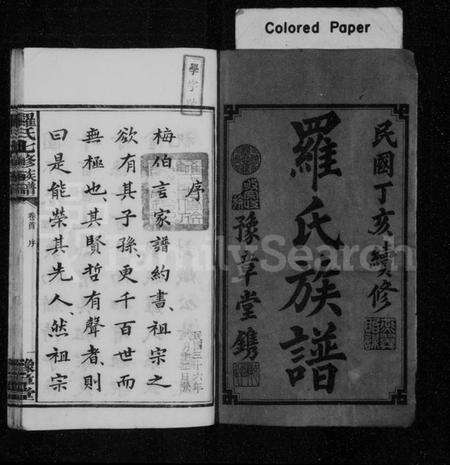 Colored Paper
民國丁亥續修
羅氏族譜
豫章堂鐫
學字號
序
梅伯言家譜約書祖宗之
欲有其子孫更千百世而
無極也其賢哲有聲者則
曰是能榮其先人然祖宗
羅氏七修族譜
卷首 序
豫章堂
FamilySearch